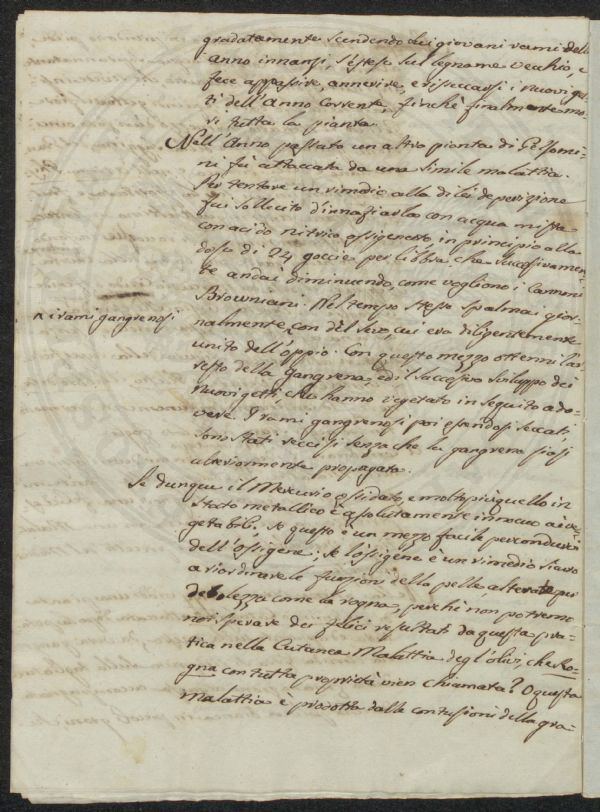 gradatamente scendendo dai giovani rami dell'
anno innanzi, s'estese sul legname vecchio, e
fece appassire, annerire, e disseccarsi i nuovi get-
ti dell'Anno corrente, finchè finalmente mo-
rì tutta la pianta.
Nell'Anno passato un altra pianta di Gelsomi-
ni fù attaccata da una simile malattia.
Per tentare un rimedio alla di lei deperizione
fui sollecito d'innaffiarla con acqua mista
con acido nitrico ossigenato, in principio alla
dose di 24 goccie per libbra, che successivamen-
te andai diminuendo, come vogliono i Canoni
Browniani. Nel tempo stesso spalmai gior-
nalmente ^ con del sevo, cui era diligentemente
^ i rami gangrenosi
unito dell'oppio. Con questo mezzo ottenni l'ar-
resto della gangrena, ed il successivo sviluppo dei
nuovi getti, che hanno vegetato in seguito a do-
vere. I rami gangrenosi poi essendosi seccati,
sono stati reccisi senza che la gangrena siasi
ulteriormente propagata.
Se dunque il Mercurio ossidato, e molto più quello in
stato metallico è assolutamente innocuo ai ve-
getabili, se questo è un mezzo facile per condurvi
dell'ossigene; se l'ossigene è un rimedio sicuro
a riordinare le funzioni della pelle alterate per
debolezza come la rogna, perchè non potremo
noi sperare dei felici resultati da questa pra-
tica nella Cutanea Malattia degl'olivi, che Ro-
gna con tutta proprietà vien chiamata? O questa
malattia è prodotta dalle contusioni della gra-